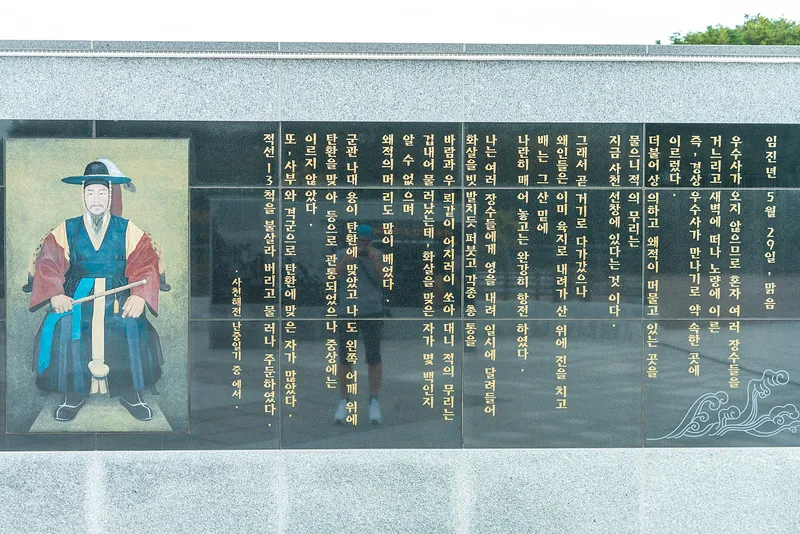 임진년 5월 29일, 맑음
우수사가 오지 않으므로 혼자 여러 장수들을
거느리고 새벽에 떠나 노량에 이른
즉, 경상 우수사가 만나기로 약속한 곳에
이르렀다.
더불어 상의하고 왜적이 머물고 있는 곳을
물으니 적의 무리는
지금 사천 선창에 있다는 것이다.
그래서 곧 거기로 다가갔으나
왜인들은 이미 육지로 내려가 산 위에 진을 치고
배는 그 산 밑에
나란히 매어 놓고는 완강히 항전하였다.
나는 여러 장수들에게 영을 내려 일시에 달려들어
화살을 빗발치듯 퍼붓고 각종 총통을
바람과 우뢰같이 어지러이 쏘아대니 적의 무리는
겁내어 물러났는데, 화살을 맞은 자가 몇 백인지
알 수 없으며
왜적의 머리도 많이 베었다.
군관 나대용이 탄환에 맞았고 나도 왼쪽 어깨 위에
탄환을 맞아 등으로 관통되었으나 중상에는
이르지 않았다.
또, 사부와 격군으로 탄환에 맞은 자가 많았다.
적선 13척을 불살라 버리고 물러나 주둔하였다.
· 사천해전 난중일기 중에서 ·